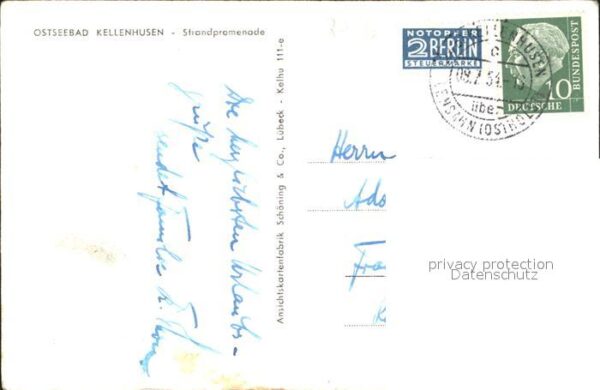 OSTSEEBAD KELLENHUSEN - Strandpromenade
NOTOPFER
2 BERLIN
STEUERMARKE
KELLENHUSEN
c
09.7.54
über
LENSAHN (OSTHOLST)
10
DEUTSCHE
BUNDESPOST
Die herzlichsten Urlaubs-
grüße
sendet Familie
Ansichtskartenfabrik Schöning & Co., Lübeck - Kelhu 111-e
Herrn
Ado
privacy protection
Datenschutz